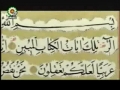 بسم الله
الر تلك آيات الكتاب المبين
عربيا لعلكم تعقلون نحن نقص